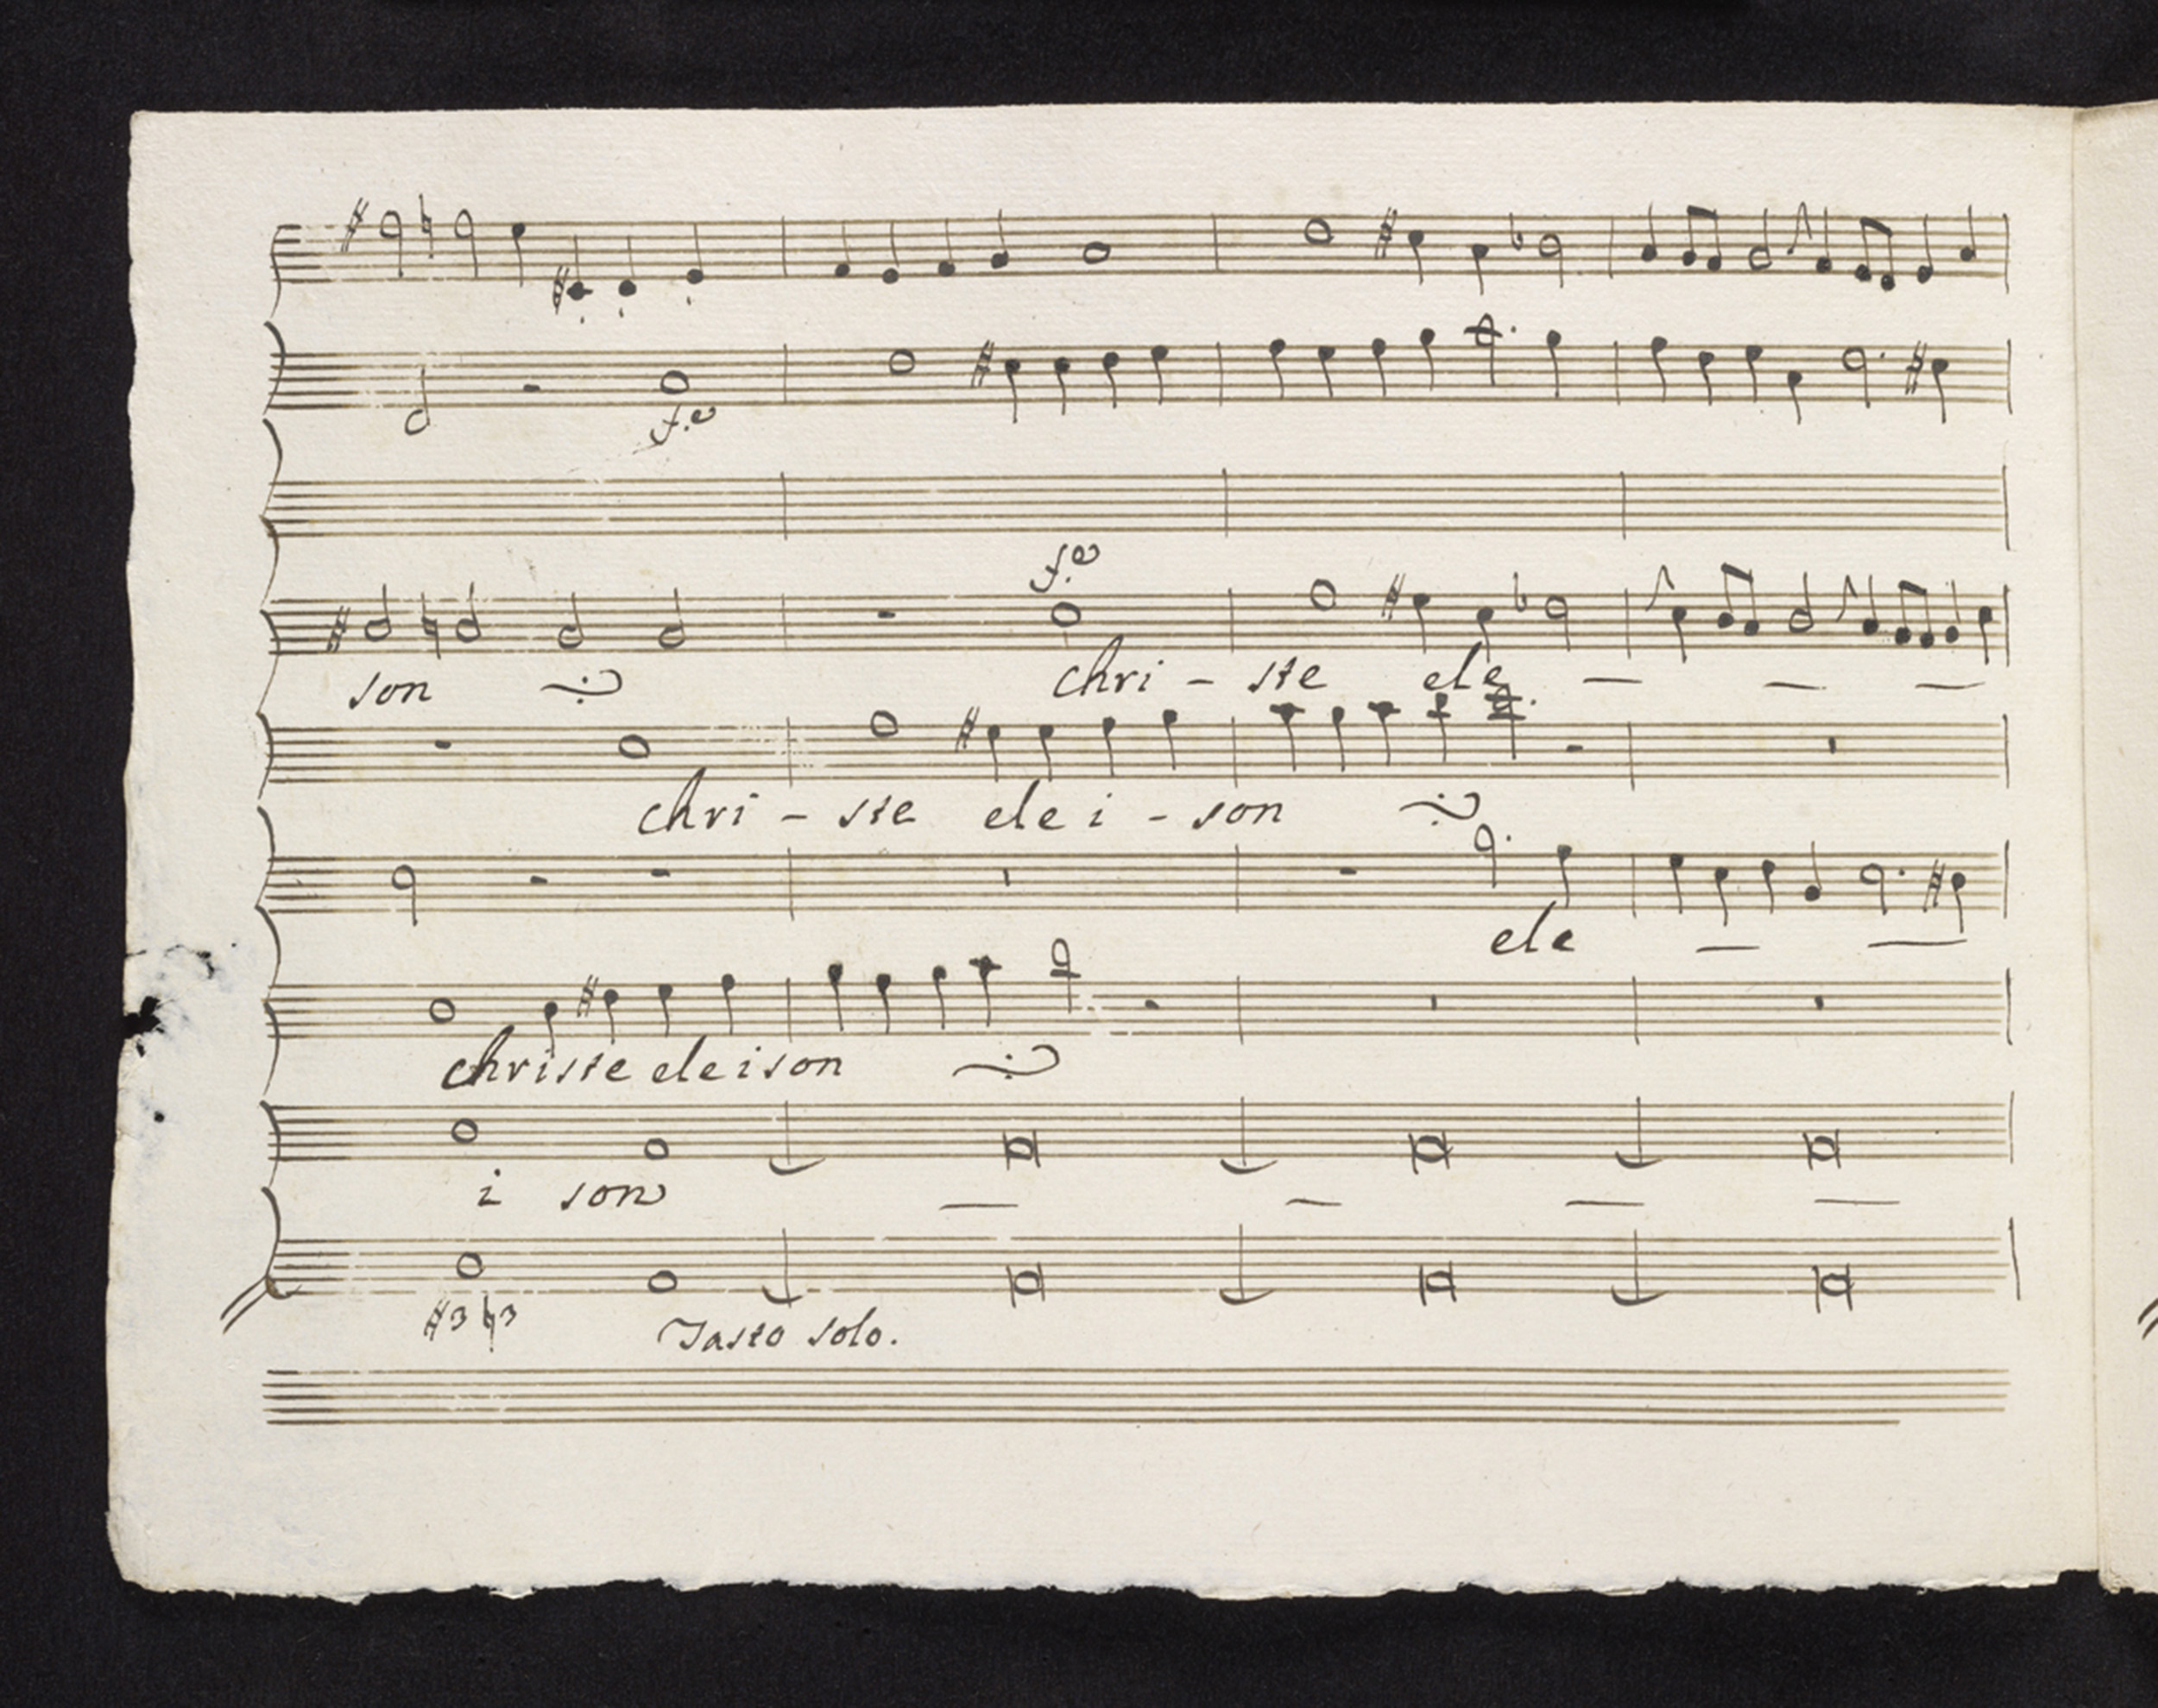 f.e
f.e
son
chri - ste ele
chri - ste ele i - son
ele
christe eleison
i son
#3 ♮3 Tasto solo.